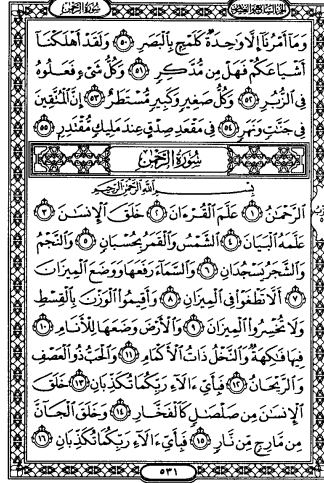 سُورَةُ الرَّحْمَٰن
وَمَا أَمْرُنَا إِلَّا وَاحِدَةٌ كَلَمْحٍ بِالْبَصَرِ ٥٠ وَلَقَدْ أَهْلَكْنَا
أَشْيَاعَكُمْ فَهَلْ مِن مُّدَّكِرٍ ٥١ وَكُلُّ شَيْءٍ فَعَلُوهُ
فِي الزُّبُرِ ٥٢ وَكُلُّ صَغِيرٍ وَكَبِيرٍ مُّسْتَطَرٌ ٥٣ إِنَّ الْمُتَّقِينَ
فِي جَنَّاتٍ وَنَهَرٍ ٥٤ فِي مَقْعَدِ صِدْقٍ عِندَ مَلِيكٍ مُّقْتَدِرٍ ٥٥
سُورَةُ الرَّحْمَٰن
بِسْمِ اللَّهِ الرَّحْمَٰنِ الرَّحِيمِ
الرَّحْمَٰنُ ١ عَلَّمَ الْقُرْءَانَ ٢ خَلَقَ الْإِنسَٰنَ ٣
عَلَّمَهُ الْبَيَانَ ٤ الشَّمْسُ وَالْقَمَرُ بِحُسْبَانٍ ٥ وَالنَّجْمُ
وَالشَّجَرُ يَسْجُدَانِ ٦ وَالسَّمَاءَ رَفَعَهَا وَوَضَعَ الْمِيزَانَ
٧ أَلَّا تَطْغَوْا فِي الْمِيزَانِ ٨ وَأَقِيمُوا الْوَزْنَ بِالْقِسْطِ
وَلَا تُخْسِرُوا الْمِيزَانَ ٩ وَالْأَرْضَ وَضَعَهَا لِلْأَنَامِ ١٠
فِيهَا فَٰكِهَةٌ وَالنَّخْلُ ذَاتُ الْأَكْمَامِ ١١ وَالْحَبُّ ذُو الْعَصْفِ
وَالرَّيْحَانُ ١٢ فَبِأَيِّ ءَالَاءِ رَبِّكُمَا تُكَذِّبَانِ ١٣ خَلَقَ
الْإِنسَٰنَ مِن صَلْصَٰلٍ كَالْفَخَّارِ ١٤ وَخَلَقَ الْجَانَّ
مِن مَّارِجٍ مِّن نَّارٍ ١٥ فَبِأَيِّ ءَالَاءِ رَبِّكُمَا تُكَذِّبَانِ ١٦
٥٣١